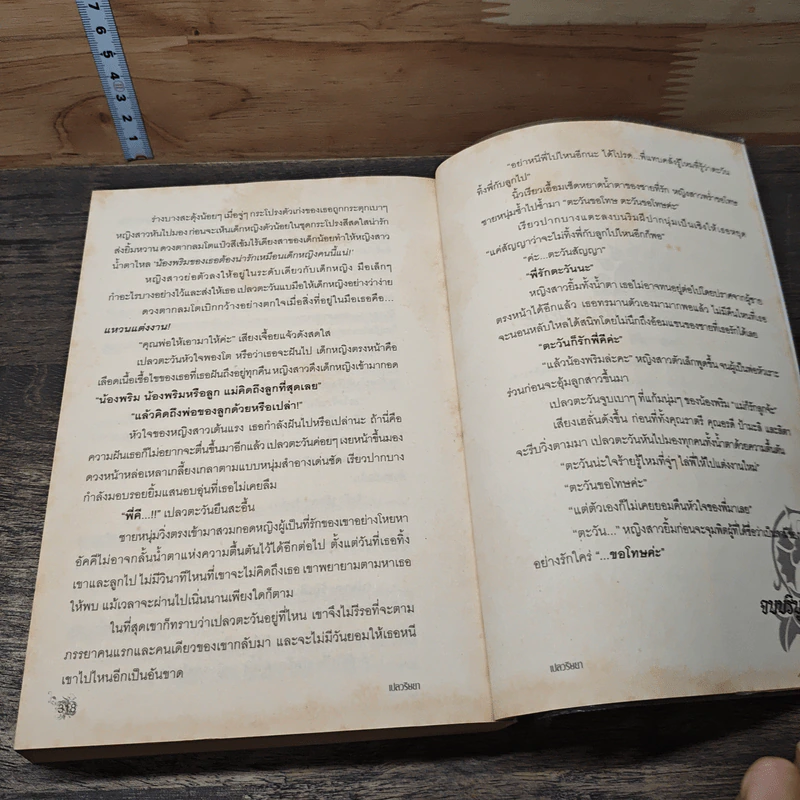 7
6
5
4
3
2
1
ร่างบางสะดุ้งน้อยๆ เมื่อจู่ๆ กระโปรงตัวเก่งของเธอถูกกระตุกเบาๆ
หญิงสาวหันไปมอง ก่อนจะเห็นเด็กหญิงตัวน้อยในชุดกระโปรงสีสดใสน่ารัก
ส่งยิ้มหวาน ดวงตากลมโตแป๋วสีเข้มไร้เดียงสาของเด็กน้อยทำให้หญิงสาว
น้ำตาไหล ‘น้องพริมของเธอต้องน่ารักเหมือนเด็กหญิงคนนี้แน่!’
หญิงสาวย่อตัวลงให้อยู่ในระดับเดียวกับเด็กหญิง มือเล็กๆ
กำอะไรบางอย่างไว้และส่งให้เธอ เปลวตะวันแบมือให้เด็กหญิงอย่างว่าง่าย
ดวงตากลมโตเบิกกว้างอย่างตกใจเมื่อสิ่งที่อยู่ในมือเธอคือ...
แหวนแต่งงาน!
“คุณพ่อให้เอามาให้ค่ะ” เสียงเจื้อยแจ้วดังสดใส
เปลวตะวันหัวใจพองโต หรือว่าเธอจะฝันไป เด็กหญิงตรงหน้าคือ
เลือดเนื้อเชื้อไขของเธอที่เธอฝันถึงอยู่ทุกคืน หญิงสาวดึงเด็กหญิงเข้ามากอด
“น้องพริม น้องพริมหรือลูก แม่คิดถึงลูกที่สุดเลย”
“แล้วคิดถึงพ่อของลูกด้วยหรือเปล่า!”
หัวใจของหญิงสาวเต้นแรง เธอกำลังฝันไปหรือเปล่านะ ถ้านี่คือ
ความฝันเธอก็ไม่อยากจะตื่นขึ้นมาอีกแล้ว เปลวตะวันค่อยๆ เงยหน้าขึ้นมอง
ดวงหน้าหล่อเหลาเกลี้ยงเกลาตามแบบหนุ่มสำอางเด่นชัด เรียวปากบาง
กำลังมอบรอยยิ้มแสนอบอุ่นที่เธอไม่เคยลืม
“พี่คี...!!” เปลวตะวันยืนสะอื้น
ชายหนุ่มวิ่งตรงเข้ามาสวมกอดหญิงผู้เป็นที่รักของเขาอย่างโหยหา
อัคคีไม่อาจกลั้นน้ำตาแห่งความตื้นตันไว้ได้อีกต่อไป ตั้งแต่วันที่เธอทิ้ง
เขาและลูกไป ไม่มีวินาทีไหนที่เขาจะไม่คิดถึงเธอ เขาพยายามตามหาเธอ
ให้พบ แม้เวลาจะผ่านไปเนิ่นนานเพียงใดก็ตาม
ในที่สุดเขาก็ทราบว่าเปลวตะวันอยู่ที่ไหน เขาจึงไม่รีรอที่จะตาม
ภรรยาคนแรกและคนเดียวของเขากลับมา และจะไม่มีวันยอมให้เธอหนี
เขาไปไหนอีกเป็นอันขาด
เปลวริษยา
“อย่าหนีพี่ไปไหนอีกนะ ได้โปรด...พี่แทบคลั่งรู้ไหมที่รู้ว่าตะวัน
ทิ้งพี่กับลูกไป”
นิ้วเรียวเอื้อมเช็ดหยาดน้ำตาของชายที่รัก หญิงสาวพร่ำขอโทษ
ชายหนุ่มซ้ำไปซ้ำมา “ตะวันขอโทษ ตะวันขอโทษค่ะ”
เรียวปากบางแตะลงบนริมฝีปากนุ่มเป็นเชิงให้เธอหยุด
“แค่สัญญาว่าจะไม่ทิ้งพี่กับลูกไปไหนอีกก็พอ”
“ค่ะ...ตะวันสัญญา”
“พี่รักตะวันนะ”
หญิงสาวยิ้มทั้งน้ำตา เธอไม่อาจทนอยู่ต่อไปโดยปราศจากผู้ชาย
ตรงหน้าได้อีกแล้ว เธอทรมานตัวเองมามากพอแล้ว ไม่มีคืนไหนที่เธอ
จะนอนหลับใหลได้สนิทโดยไม่นึกถึงอ้อมแขนของชายที่เธอรักได้เลย
“ตะวันก็รักพี่คีค่ะ”
“แล้วน้องพริมล่ะคะ” หญิงสาวตัวเล็กพูดขึ้น จนผู้เป็นพ่อหัวเราะ
ร่วนก่อนจะอุ้มลูกสาวขึ้นมา
เปลวตะวันจูบเบาๆ ที่แก้มนุ่มๆ ของน้องพริม “แม่ก็รักลูกจ้ะ”
เสียงเฮลั่นดังขึ้น ก่อนที่ทั้งคุณราตรี คุณอรดี ป้ามะลิ
จะรีบวิ่งตามมา เปลวตะวันหันไปมองทุกคนทั้งน้ำตาด้วยความตื้นตัน
“ตะวันน่ะใจร้ายรู้ไหมที่จู่ๆ ไล่พี่ให้ไปแต่งงานใหม่”
“ตะวันขอโทษค่ะ”
“แต่ตัวเองก็ไม่เคยยอมคืนหัวใจของพี่มาเลย”
“ตะวัน...” หญิงสาวยิ้มก่อนจะจุมพิตผู้ที่ได้ชื่อว่าเป็น
อย่างรักใคร่ “...ขอโทษค่ะ”
เปลวริษยา